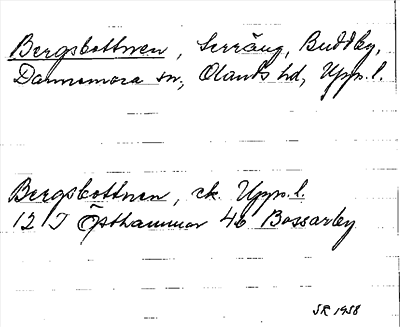 Bergsbottnen, terräng, Buddby,
Dannemora sn, Olands hd, Upps. l.
Bergsbottnen, ek. Upps. l.
12 I Östhammar 4b Bossarby
SR 1958